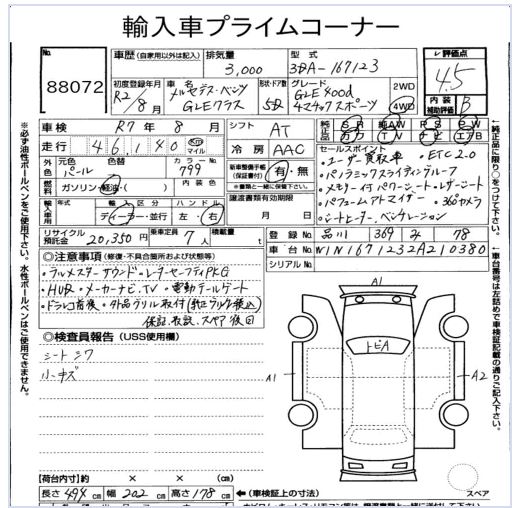 輸入車プライムコーナー
No. 88072
車歴 (自家用以外は記入)
排気量 3,000
型式 3DA-167123
評価点 4.5
初度登録年月 R2/8月
車名 メルセデス・ベンツ GLEクラス
形状・ドア数 5D
グレード GLE400d 4マチックスポーツ
2WD
4WD
内装補助評価 B
車検 R7年8月
シフト AT
純正品 SR AW PS PW
カワ TV ナビ エアB
走行 46,140 km マイル
冷房 AAC
外色 元色 パール 色替 カラーNo. 799
燃料 ガソリン・軽油・( ) 内装色
新車整備手帳(保証書付) 有・無
※書類と一緒に保管下さい。
輸入車用 年式 輸入区分 ディーラー・並行 ハンドル 左・右
譲渡書類有効期限 月 日
リサイクル預託金 20,350円 乗車定員 7人 積載量 t
セールスポイント
・ユーザー買取車 ・ETC2.0
・パノラミックスライディングルーフ
・メモリー付パワーシート・レザーシート
・パフュームアトマイザー ・360°カメラ
・シートヒーター・ベンチレーション
登録No. 品川 369 78
車台No. W1N1671232A210380
シリアルNo.
◎注意事項 (修復・不具合箇所および状態等)
・ブルメスターサウンド・レーダーセーフティPKG
・HUD・メーカーナビ、TV・電動テールゲート
・ドラレコ前後・外品グリル取付(純正グリル後送)
保証、取説、スペア後日
◎検査員報告 (USS使用欄)
シートシワ
小キズ
トビA
A1
A2
【荷台内寸】約 × × (cm)
長さ 494 cm 幅 202 cm 高さ 178 cm (車検証上の寸法)
スペア
※必ず油性ボールペンをご使用下さい。水性ボールペンはご使用できません。
←純正品に限り○をつけて下さい。
←車台番号は左詰めで車検証記載の通りご記入下さい。